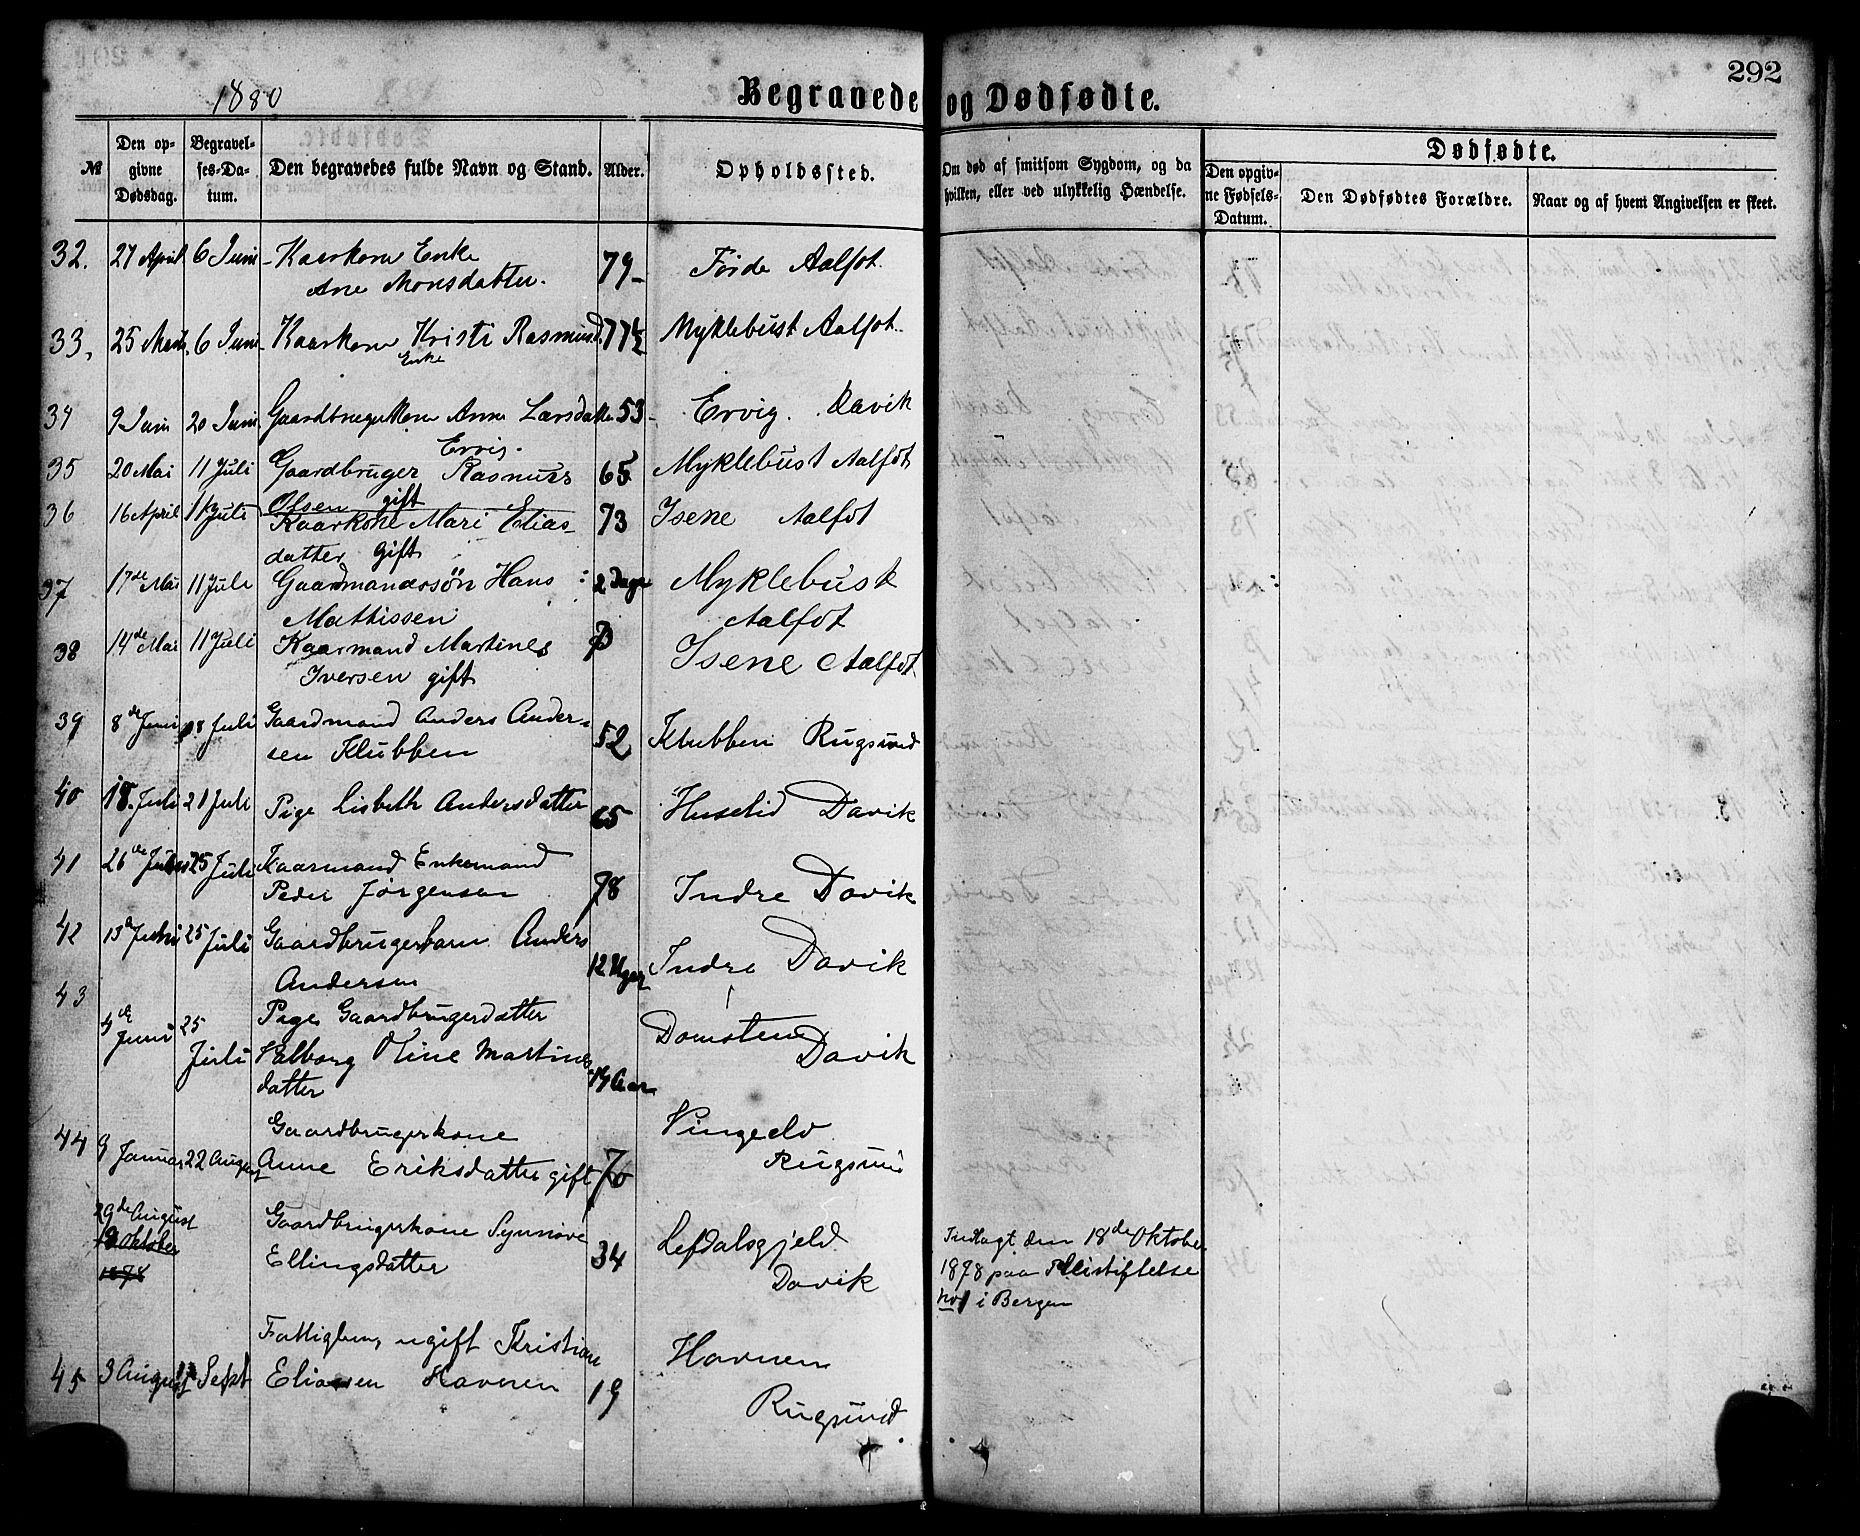 292
1880
Begravede og Dødfødte.
№
Den opgivne Dødsdag.
Begravelses-Datum.
Den begravedes fulde Navn og Stand.
Alder.
Opholdssted.
Om død af smitsom Sygdom, og da hvilken, eller ved ulykkelig Hændelse.
Dødfødte.
Den opgivne Fødsels-Datum.
Den Dødfødtes Forældre.
Naar og af hvem Angivelsen er skeet.
32. 27 April 6 Juni Kaarkone Enke 79 Førde Aalfot.
Ane Monsdatter.
33. 25 6 Juni Kaarkone Kristi Rasmusd. 77½ Myklebust Aalfot.
Enke
34 9 Juni 20 Juni Gaardbrugerkone Anne Larsdatter 53 Ervig. Davik
Ervig.
35 20 Mai 11 Juli Gaardbruger Rasmus 65 Myklebust Aalfot
Olsen gift
36 16 April 11 Juli Kaarkone Mari Elias- 73 Isene Aalfot
datter gift
37 17de Mai 11 Juli Gaardmandssøn Hans 2 Dage Myklebust
Mathissen Aalfot
38 14de Mai 11 Juli Kaarmand Martines 73 Isene Aalfot
Iversen gift
39 8de Juni 18 Juli Gaardmand Anders Ander- 52 Klubben Rugsund
sen Klubben
40 18. Juli 21 Juli Pige Lisbeth Andersdatter 65 Huselid Davik
41 26de 25 Juli Kaarmand Enkemand
Peder Jørgensen 78 Indre Davik
42 13de 25 Juli Gaardbrugerbarn Anders 12 Uger Indre Davik
Andersen
43 4de Juni 25 Juli Pige Gaardbrugerdatter Domsten
Valborg Oline Martines Davik
datter 14 Aar
44 9 Januar 22 August Gaardbrugerkone Vingelv
Anne Eriksdatter gift 70 Rugsund
29de August Gaardbrugerkone Synnøve Lefdalsgjeld
Oktober 1878 Ellingsdatter 34 Davik
Indlagt den 18de Oktober
1878 paa Pleiestiftelse
no 1 i Bergen
Fattiglem, ugift Kristian Havnen
45 3 August Sept Eliassen Havnen 19
Rugsund